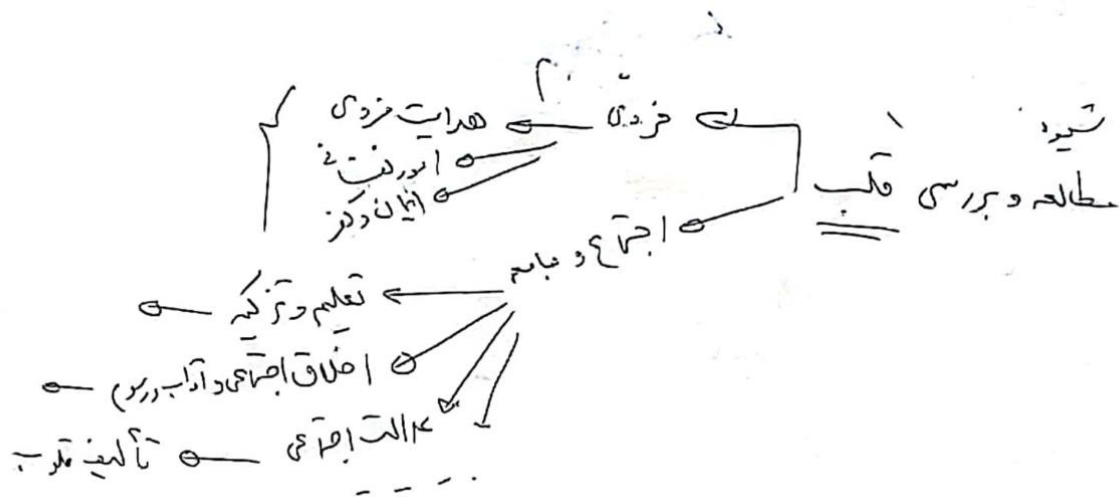 شیوه
مطالعه و بررسی قلب
فردی
هدایت فردی
امور نفسانی
ایمان و کفر
اجتماع و جامعه
تعلیم و تزکیه
اخلاق اجتماعی و آداب و رسوم
عدالت اجتماعی
تألیف قلوب